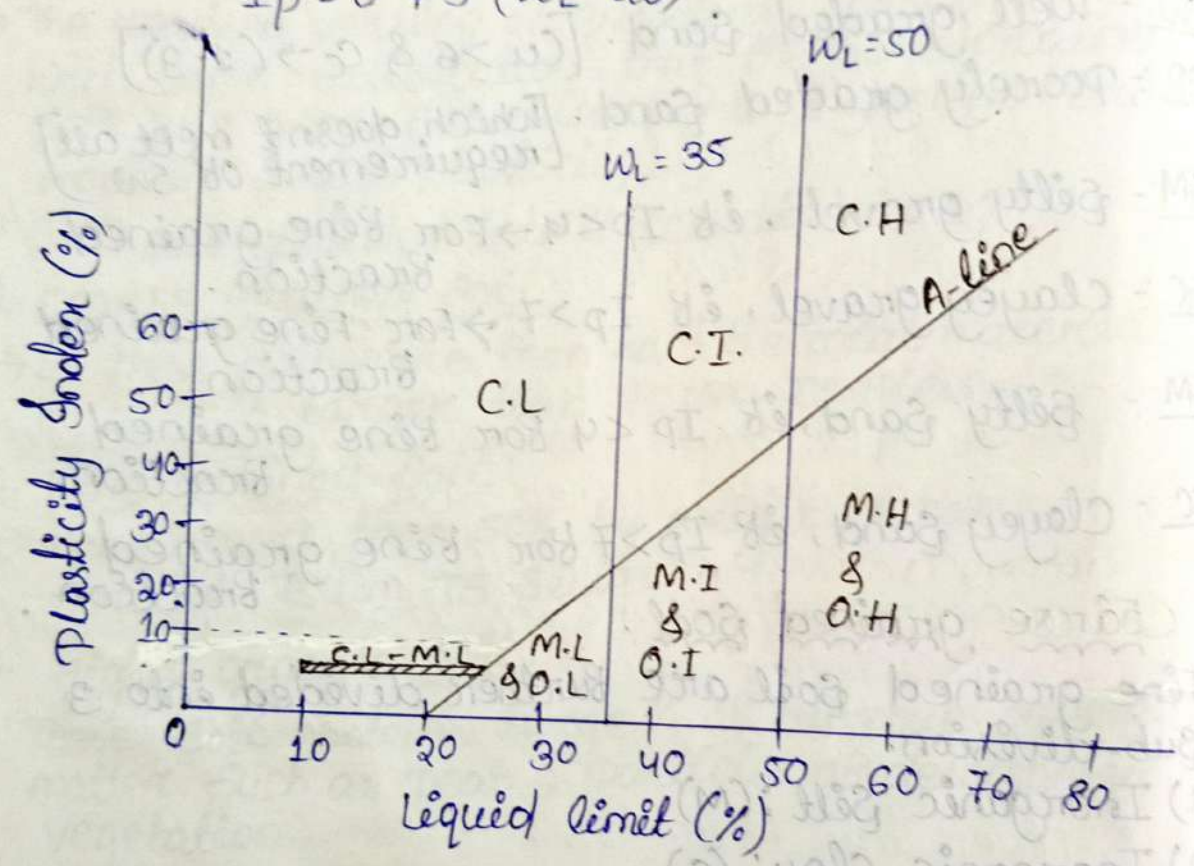 W_L = 50
W_L = 35
C.H
A-line
C.I.
C.L
M.H
&
O.H
M.I
&
O.I
M.L
& O.L
C.L - M.L
Plasticity Index (%)
60
50
40
30
20
10
0
10
20
30
40
50
60
70
80
Liquid limit (%)